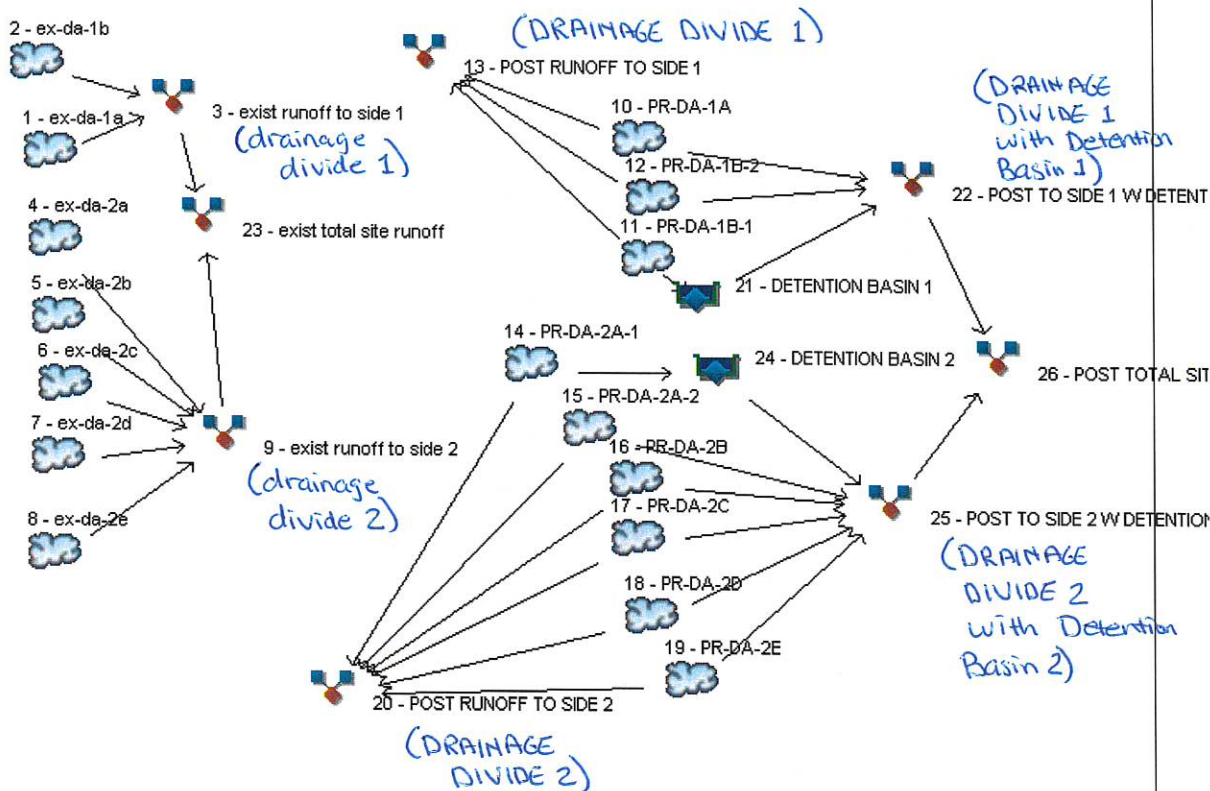 2 - ex-da-1b
1 - ex-da-1a
3 - exist runoff to side 1
(drainage
divide 1)
4 - ex-da-2a
23 - exist total site runoff
5 - ex-da-2b
6 - ex-da-2c
7 - ex-da-2d
8 - ex-da-2e
9 - exist runoff to side 2
(drainage
divide 2)
(DRAINAGE DIVIDE 1)
13 - POST RUNOFF TO SIDE 1
10 - PR-DA-1A
12 - PR-DA-1B-2
11 - PR-DA-1B-1
21 - DETENTION BASIN 1
(DRAINAGE
DIVIDE 1
with Detention
Basin 1)
22 - POST TO SIDE 1 W DETENT
14 - PR-DA-2A-1
24 - DETENTION BASIN 2
15 - PR-DA-2A-2
16 - PR-DA-2B
17 - PR-DA-2C
18 - PR-DA-2D
19 - PR-DA-2E
26 - POST TOTAL SIT
25 - POST TO SIDE 2 W DETENTION
(DRAINAGE
DIVIDE 2
with Detention
Basin 2)
20 - POST RUNOFF TO SIDE 2
(DRAINAGE
DIVIDE 2)